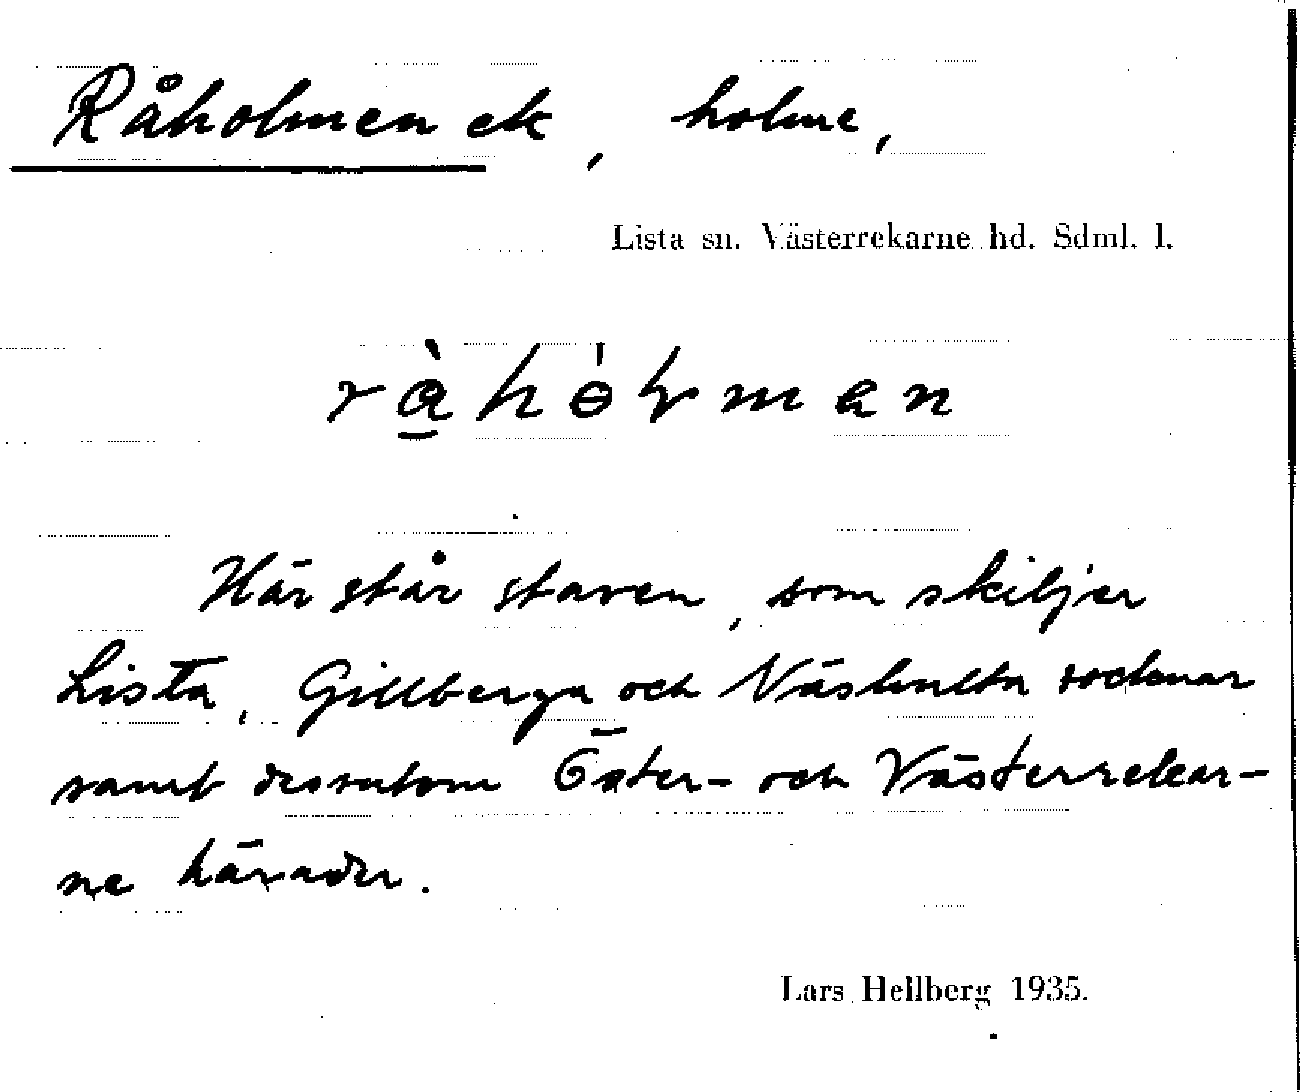 Råholmen ek, holme,
Lista sn. Västerrekarne hd. Sdml. l.
Här står staven, som skiljer
Lista, Gillberga och Västulta socknar
samt dessutom Öster- och Västerrekar-
ne härader.
Lars Hellberg 1935.